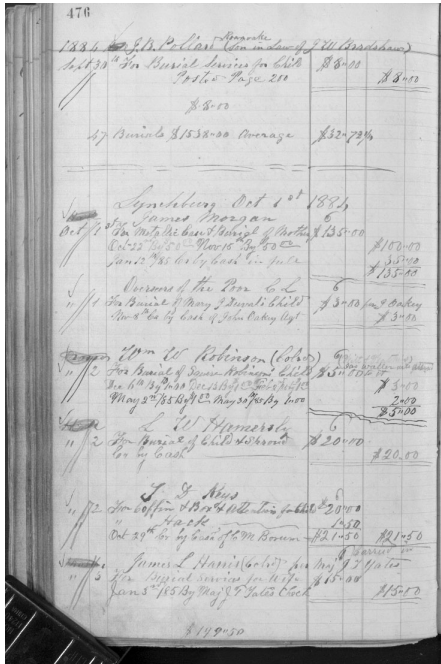 476
Roanoake
1884 J. B. Pollard (Son in Law of J W Bradshaw)
Sept 30th For Burial Services for Child $8"00
Posted Page 200 $8"00
$8"00
47 Burials $1538"00 Average $32"72
Lynchburg Oct 1st 1884
James Morgan 6
Oct 1st For Metallic Case & Burial of Mother $135"00
Oct 22 By 50 Nov 15th By $50 $100"00
Jan 12th /85 Co by Cash in full 35"00
$135"00
Overseers of the Poor C L 6
" 1 For Burial of Mary J Duval's Child $3"00 for J Oakey
Nov 8th Co by Cash of John Oakey Agt $3"00
Wm W Robinson (Cold) 6
" 2 For Burial of Child $5"00
Dec 6th By 1"00 $3"00
May 2nd /85 By May 30th /85 By 1"00 2"00
$5"00
L W Hamersly 6
" 2 For Burial of Child & Shroud $20"00
Cor by Cash $20"00
" 2 For Coffin & Box & Attention for Child $20"00
" Hack 1"50
Oct 29th Cor by Cash of C M Borum $21"50 $21"50
James L Harris (Cold) pr Maj J T Yates
" 3 For Burial Services for Wife $15"00
Jan 5th /85 By Maj J T Yates Check $15"00
$199"50